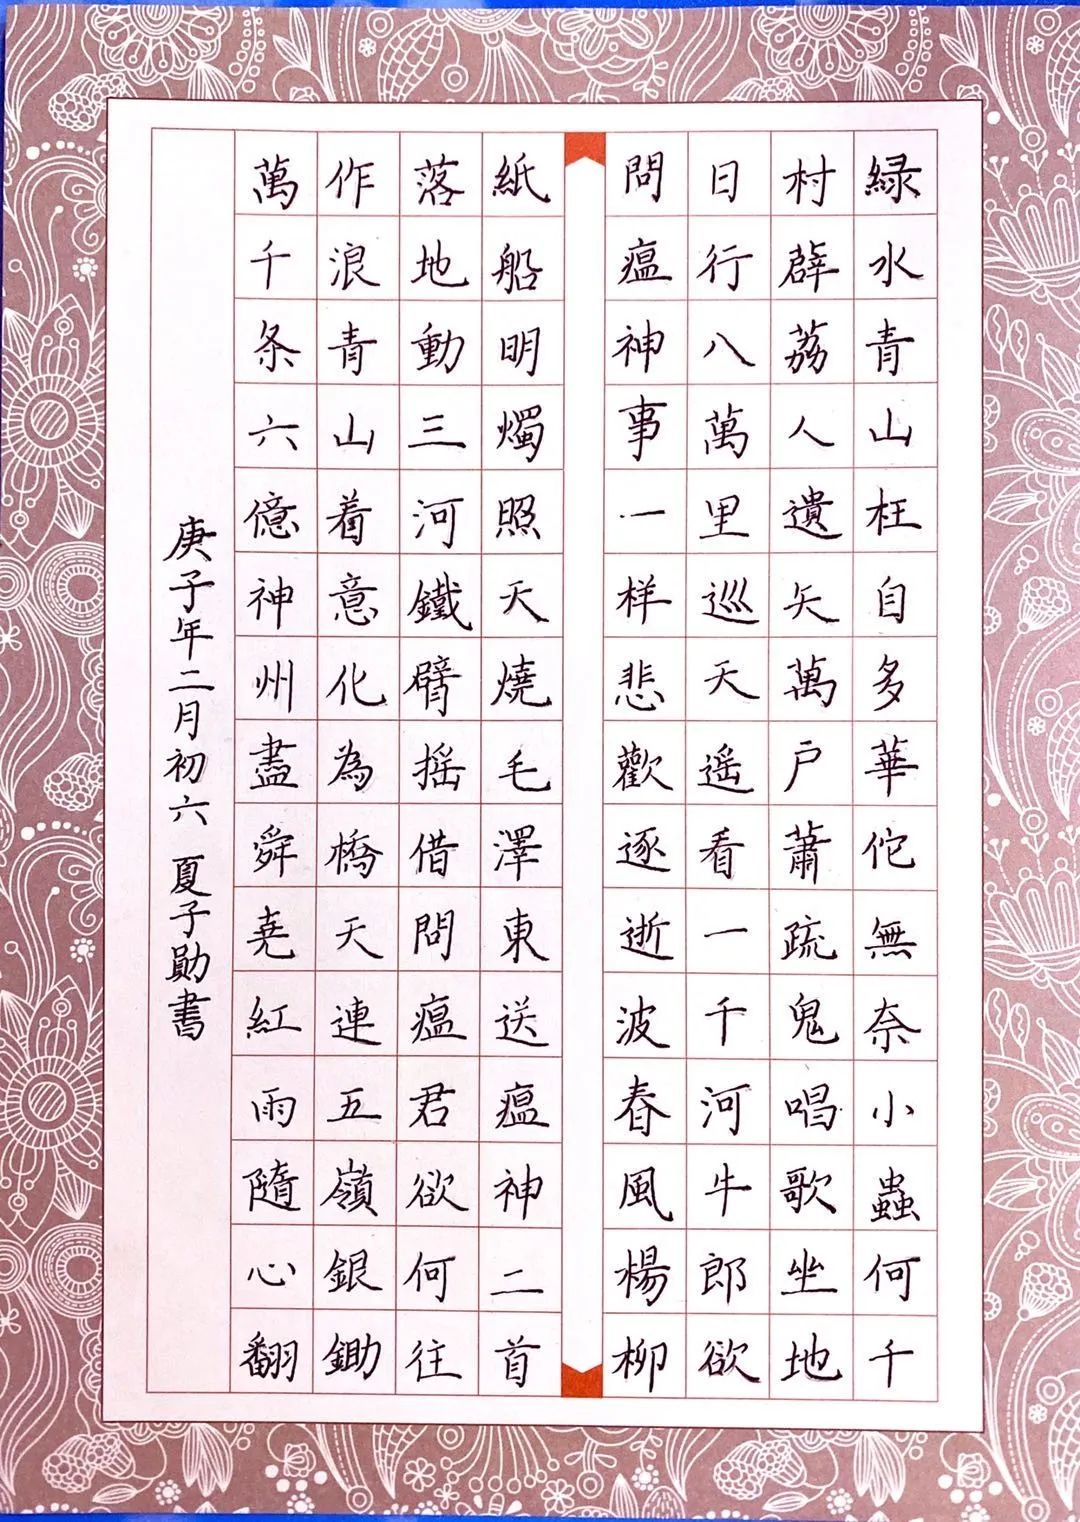 緑水青山枉自多華佗無奈小蟲何千
村薜荔人遺矢萬户蕭疏鬼唱歌坐地
日行八萬里巡天遥看一千河牛郎欲
問瘟神事一样悲歡逐逝波春風楊柳
萬千条六億神州盡舜尭紅雨隨心翻
作浪青山着意化為橋天連五嶺銀鋤
落地動三河鐵臂摇借問瘟君欲何往
紙船明燭照天燒毛澤東送瘟神二首
庚子年二月初六 夏子勛書